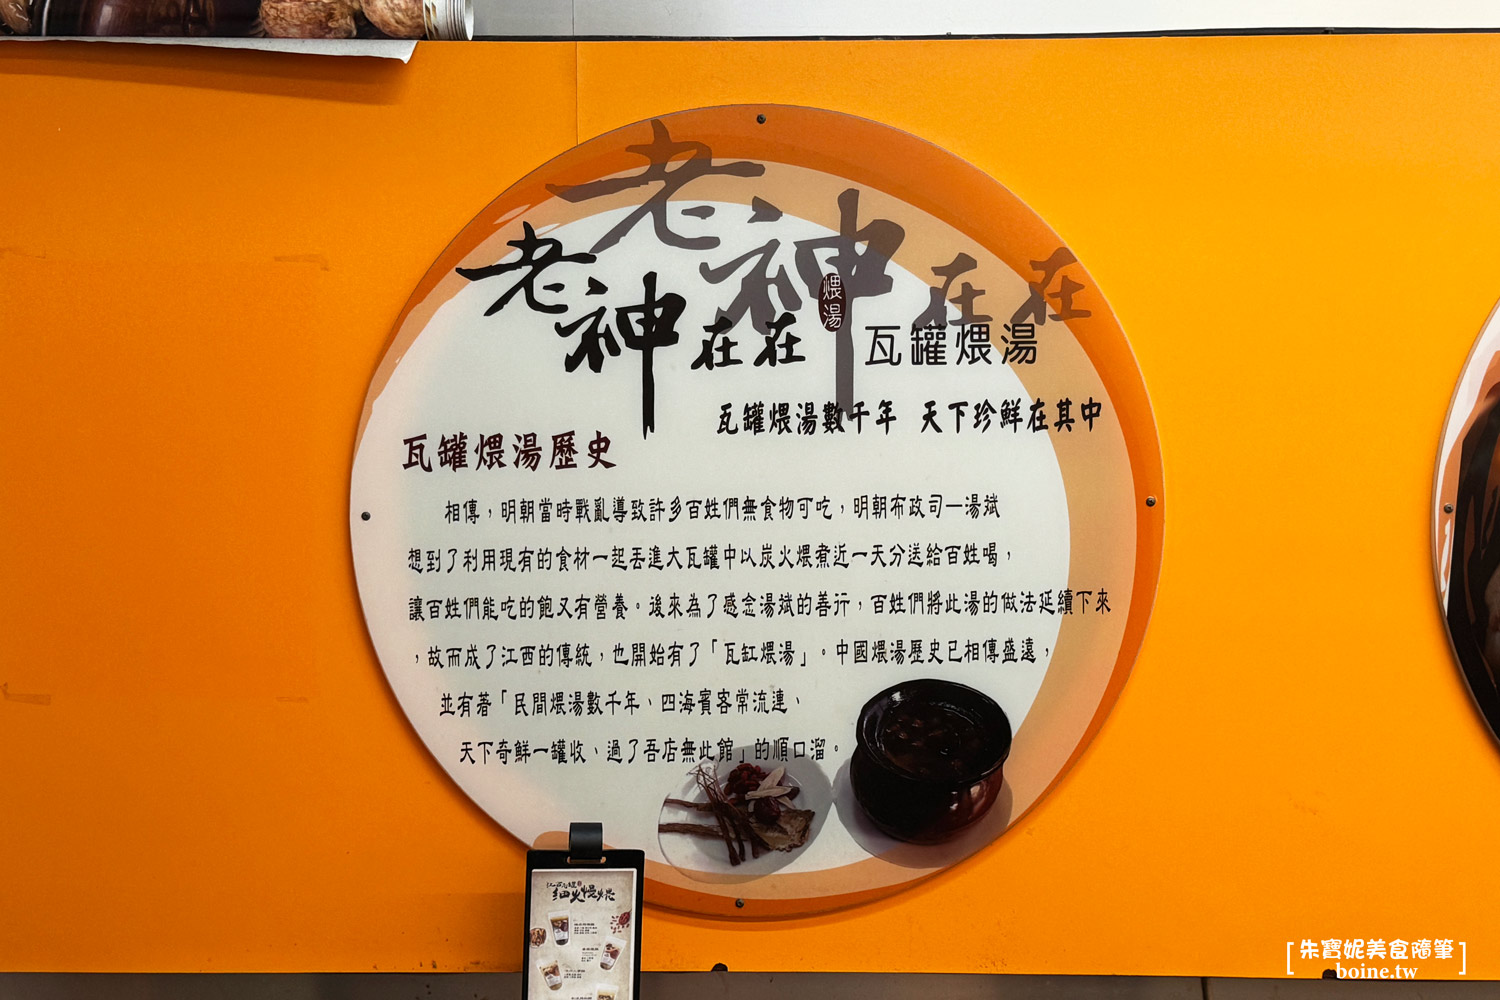 老神在在
老神在在
煨湯
瓦罐煨湯
瓦罐煨湯數千年 天下珍鮮在其中
瓦罐煨湯歷史
相傳，明朝當時戰亂導致許多百姓們無食物可吃，明朝布政司一湯斌
想到了利用現有的食材一起丟進大瓦罐中以炭火煨煮近一天分送給百姓喝，
讓百姓們能吃的飽又有營養。後來為了感念湯斌的善行，百姓們將此湯的做法延續下來
，故而成了江西的傳統，也開始有了「瓦缸煨湯」。中國煨湯歷史已相傳盛遠，
並有著「民間煨湯數千年、四海賓客常流連、
天下奇鮮一罐收、過了吾店無此館」的順口溜。
細火慢煨
朱寶妮美食隨筆
boine.tw